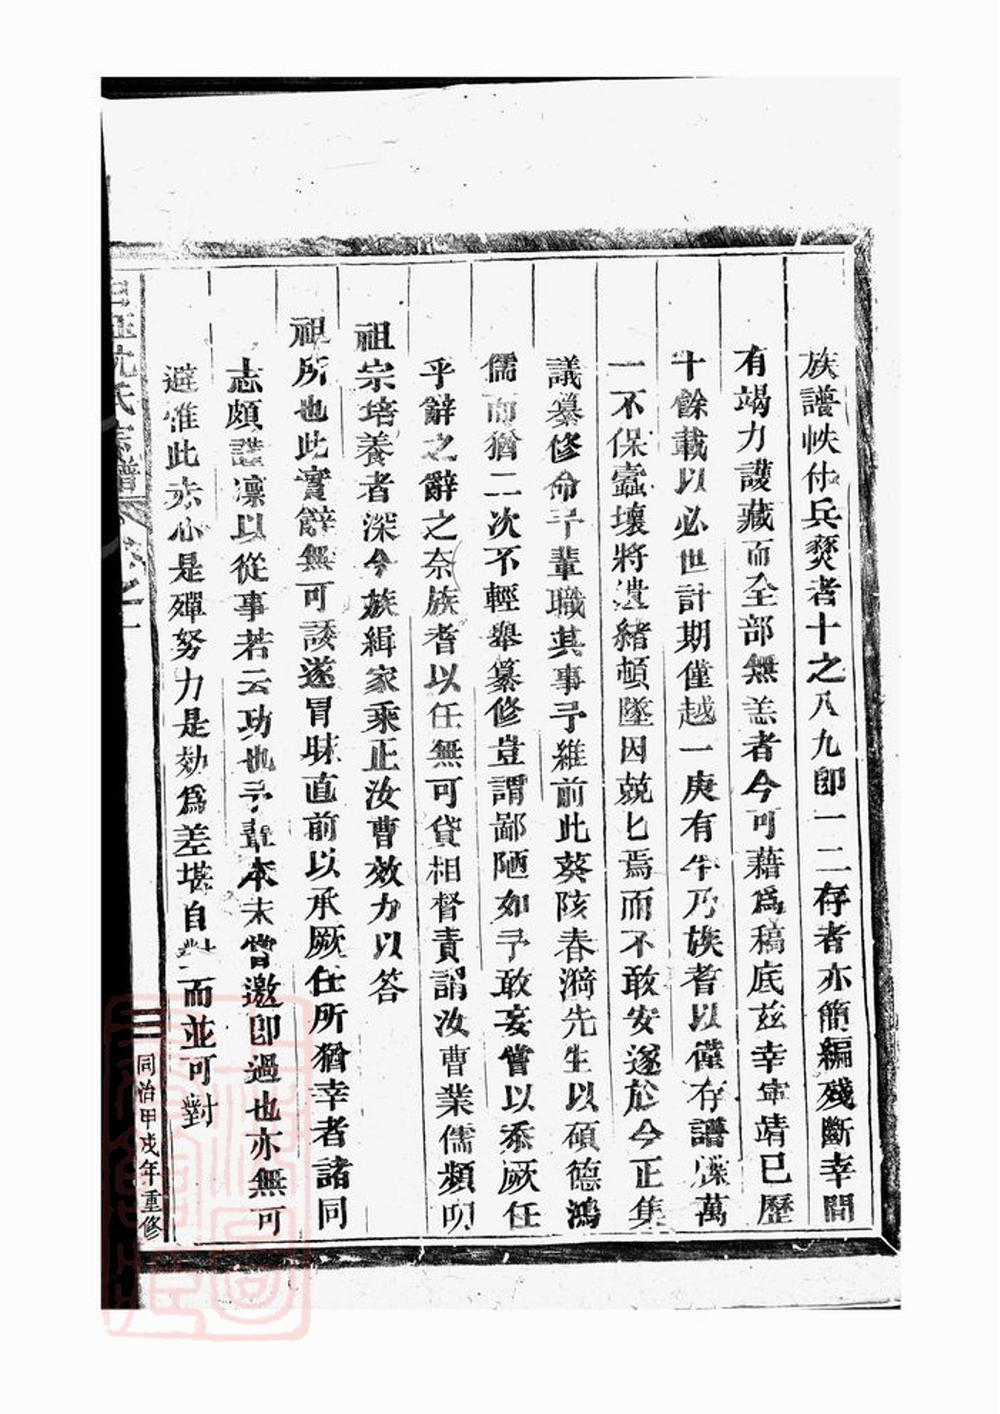 族譜帙付兵燹者十之八九即一二存者亦簡編殘斷幸間
有竭力護藏而全部無恙者今可藉為稿底茲幸寧靖已歷
十餘載以必世計期僅越一庚有半乃族耆以僅存譜牒萬
一不保蠧壞將遺緒頓墜因兢匕焉而不敢安遂於今正集
議纂修命予輩職其事予維前此葵陔春漪先生以碩德鴻
儒而猶一二次不輕舉纂修豈謂鄙陋如予敢妄嘗以忝厥任
乎辭之辭之奈族耆以任無可貸相督責謂汝曹業儒頻叨
祖宗培養者深今族緝家乘正汝曹效力以答
祖所也此實辭無可諉遂冒昧直前以承厥任所猶幸者諸同
志頗謹凛以從事若云功也予輩本未嘗邀即過也亦無可
避惟此赤心是殫努力是効為差堪自對而並可對
沈氏宗譜 卷之一 三 同治甲戌年重修